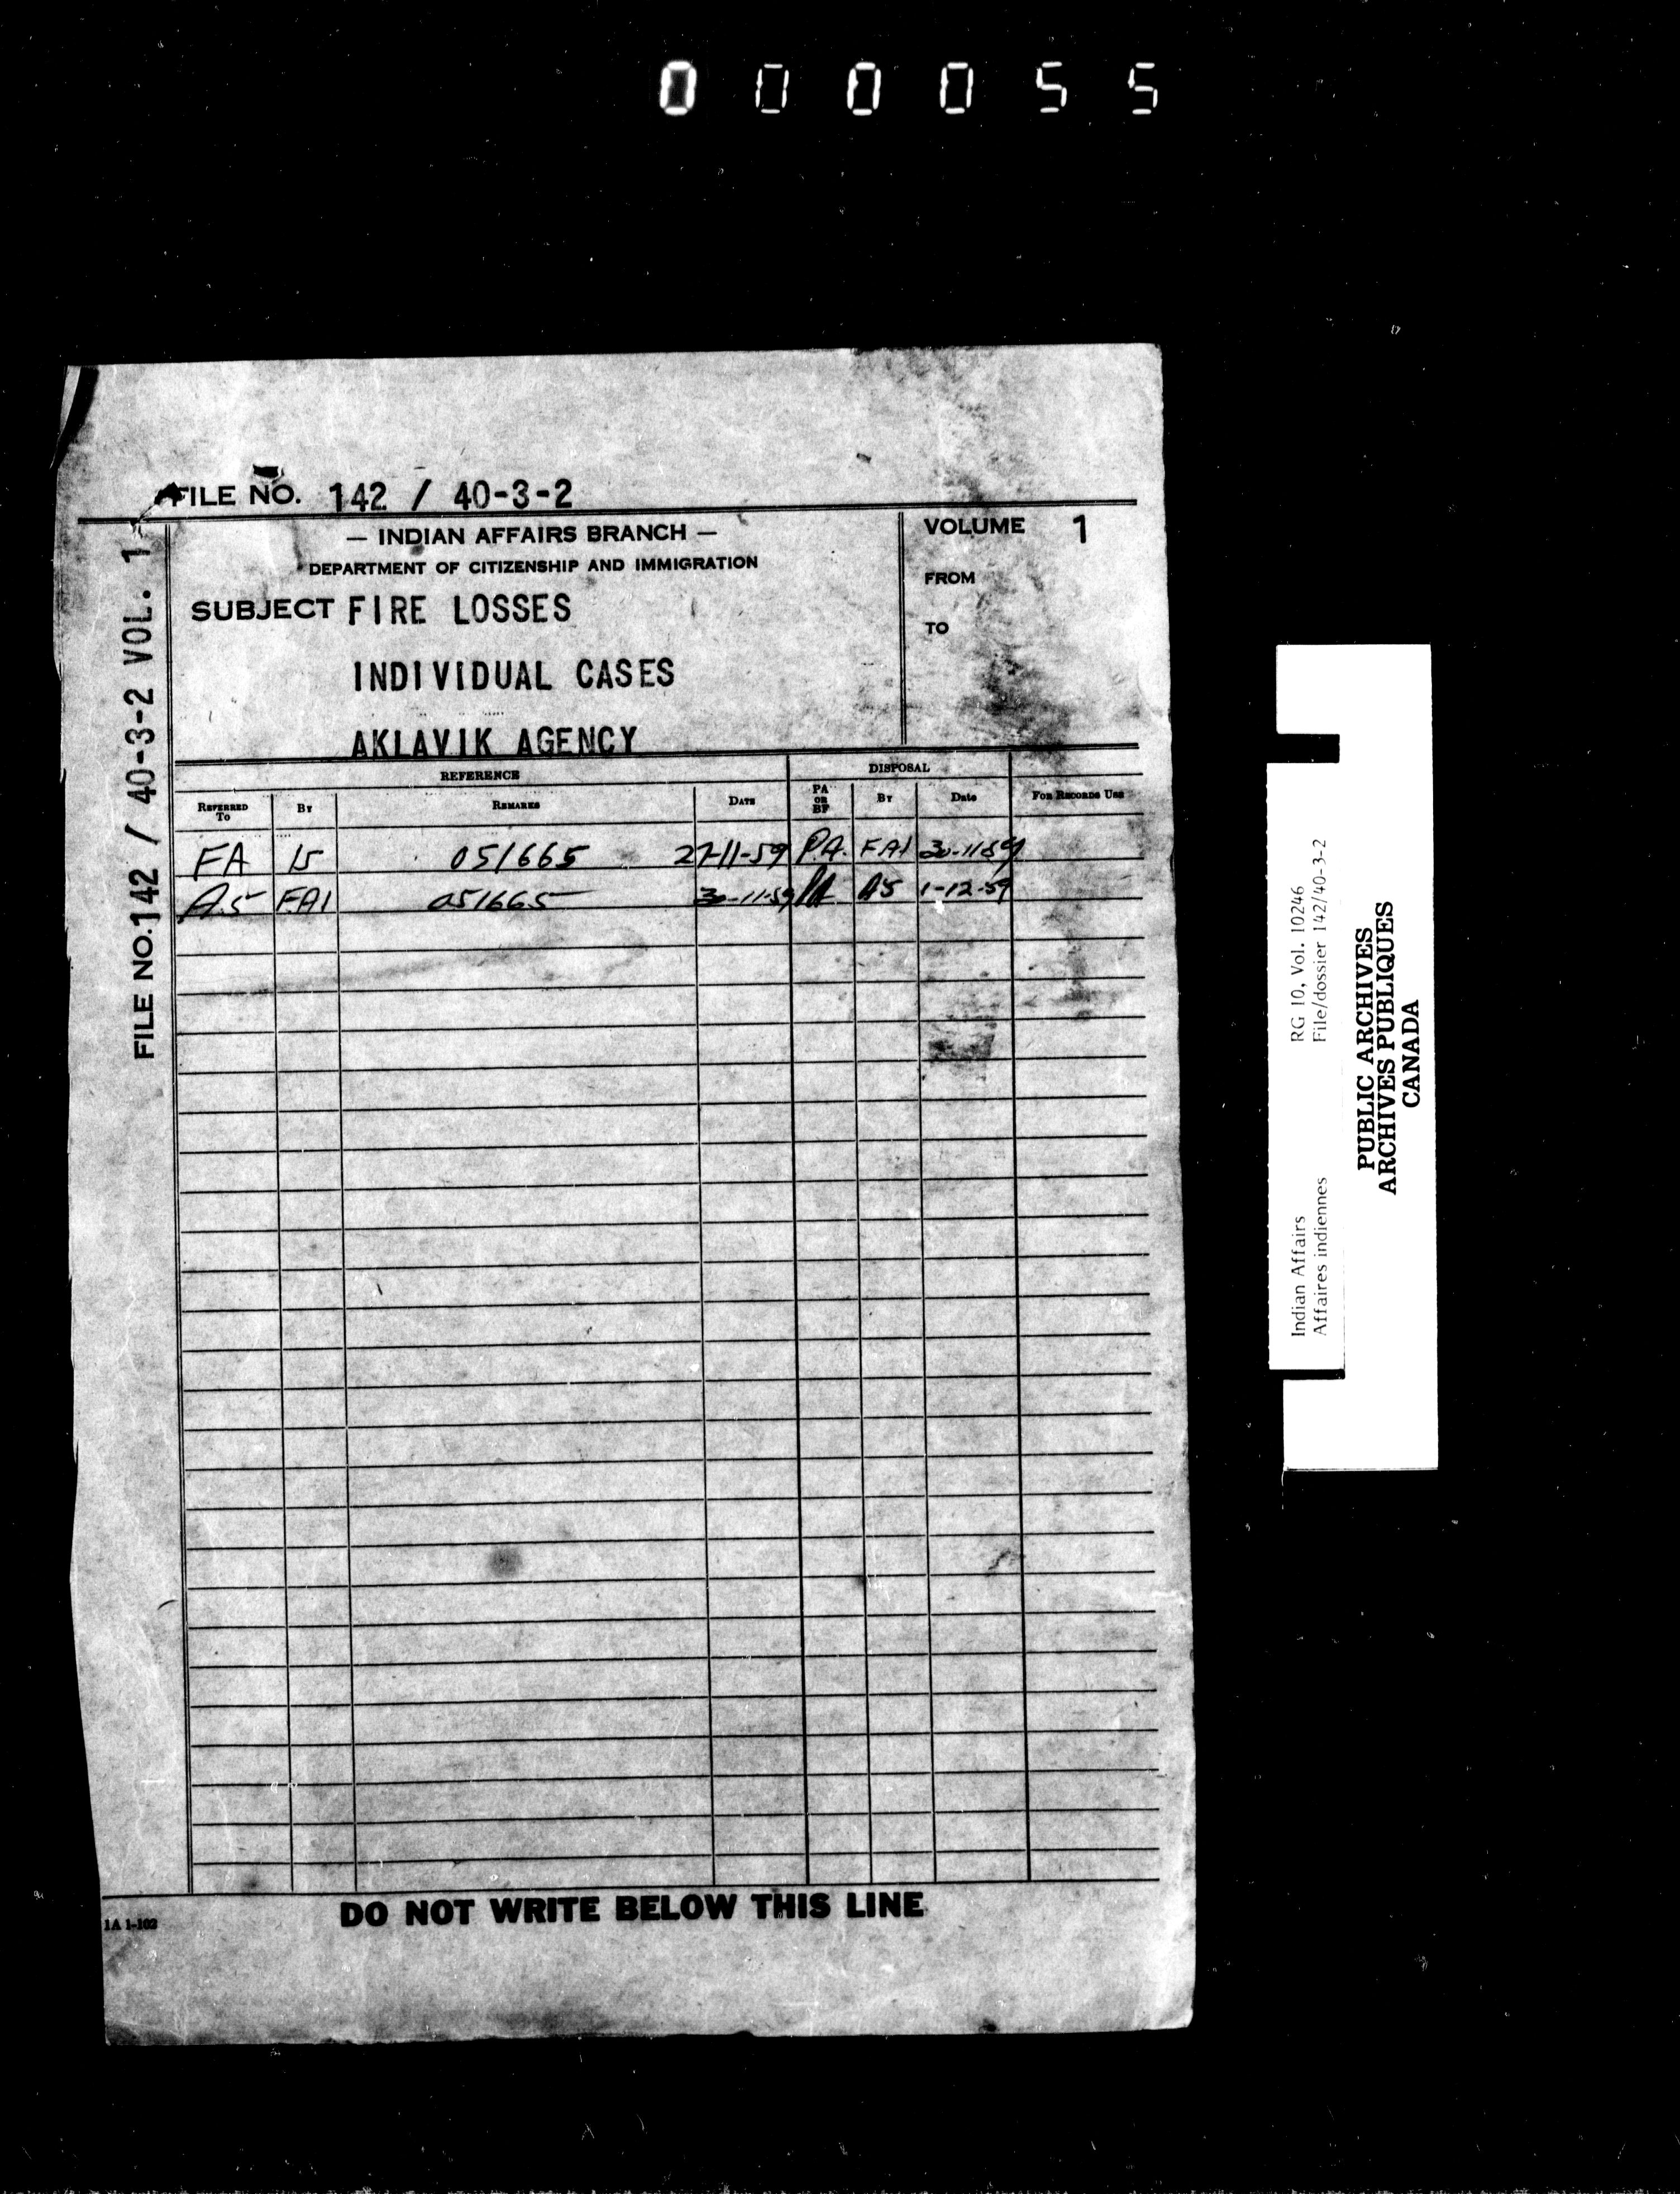 000055
FILE NO. 142 / 40-3-2
— INDIAN AFFAIRS BRANCH —
DEPARTMENT OF CITIZENSHIP AND IMMIGRATION
SUBJECT FIRE LOSSES
INDIVIDUAL CASES
AKLAVIK AGENCY
VOLUME 1
FROM
TO
FILE NO. 142 / 40-3-2 VOL. 1
REFERENCE DISPOSAL
REFERRED TO BY REMARKS DATE PA OR BF BY Date FOR RECORDS USE
FA 15 051665 27-11-59 P.A. FA1 30-11-59
A.5 FA1 051665 30-11-59 PA A5 1-12-59
DO NOT WRITE BELOW THIS LINE
1A 1-102
Indian Affairs RG 10, Vol. 10246
Affaires indiennes File/dossier 142/40-3-2
PUBLIC ARCHIVES
ARCHIVES PUBLIQUES
CANADA